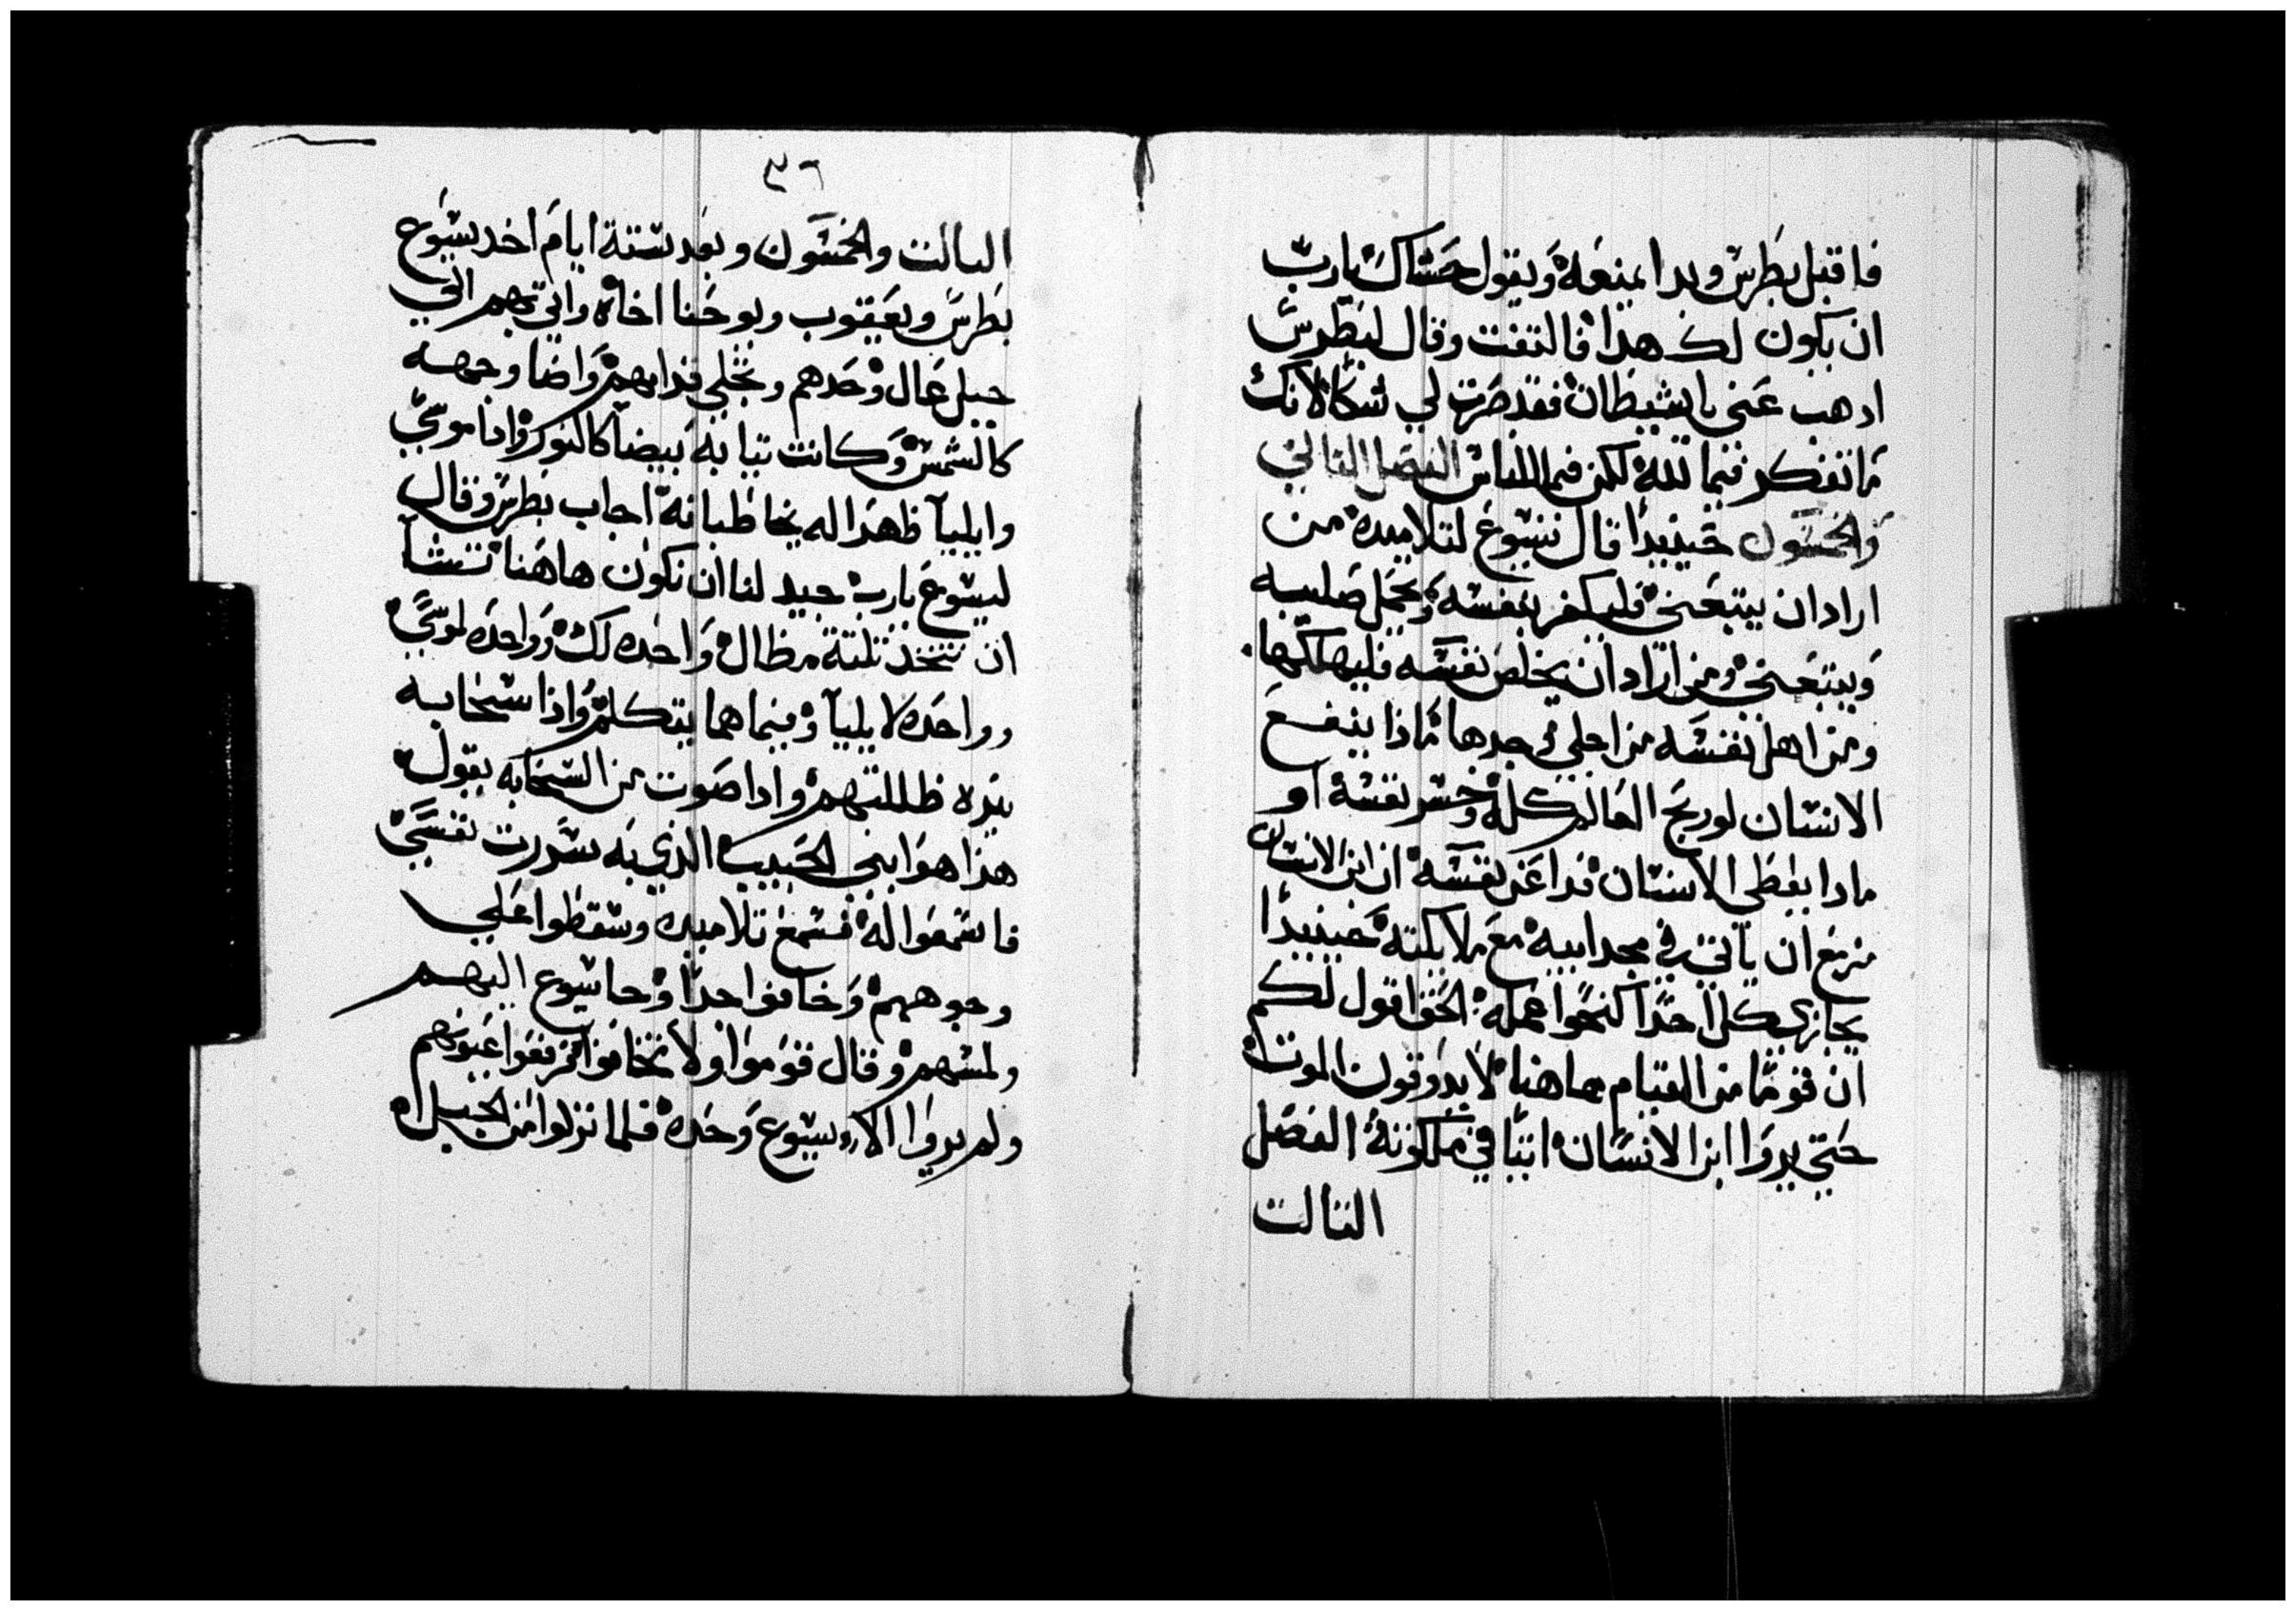 فاقبل بطرس وبدا يمنعه ويقول حشاك يارب
ان يكون لك هدا فالتفت وقال لبطرس
ادهب عني ياشيطان فقد صرت لي شكا لانك
ما تفكر فيما لله لكن فيما للناس الفصل التاني
والخمسون حينيدا قال يسوع لتلاميده من
اراد ان يتبعني فليكفر بنفسه ويحمل صليبه
ويتبعني ومن اراد ان يخلص نفسه فليهلكها
ومن اهلك نفسه من اجلي يجدها ماذا ينفع
الانسان لو ربح العالم كله وخسر نفسه او
مادا يعطي الانسان فدا عن نفسه ان ابن الانسان
مزمع ان ياتي في مجد ابيه مع ملايكته حينيدا
يجازي كل احدا كنحوا عمله الحق اقول لكم
ان قوما من القيام هاهنا لا يدوقون الموت
حتي يروا ابن الانسان اتيا في ملكوته الفصل
التالت
٣٦
التالت والخمسون وبعد ستة ايام اخد يسوع
بطرس ويعقوب ويوحنا اخاه واتي بهم الي
جبل عال وحدهم وتجلي قدامهم واضا وجهه
كالشمس وكانت تيابه بيضا كالنور وادا موسي
وايليا ظهرا له يخاطبانه اجاب بطرس وقال
ليسوع يارب جيد لنا ان نكون هاهنا تشا
ان نتخذ تلتة مظال واحده لك وواحده لموسي
وواحده لايليا وفيما هما يتكلم واذا سحابه
نيره ظللتهم وادا صوت من السحابه يقول
هذا هو ابني الحبيب الذي به سررت نفسي
فاسمعوا له فسمع تلاميده وسقطوا علي
وجوههم وخافوا جدا وجا يسوع اليهم
ولمسهم وقال قوموا ولا تخافوا فرفعوا عيونهم
ولم يروا الا يسوع وحده فلما نزلوا من الجبل